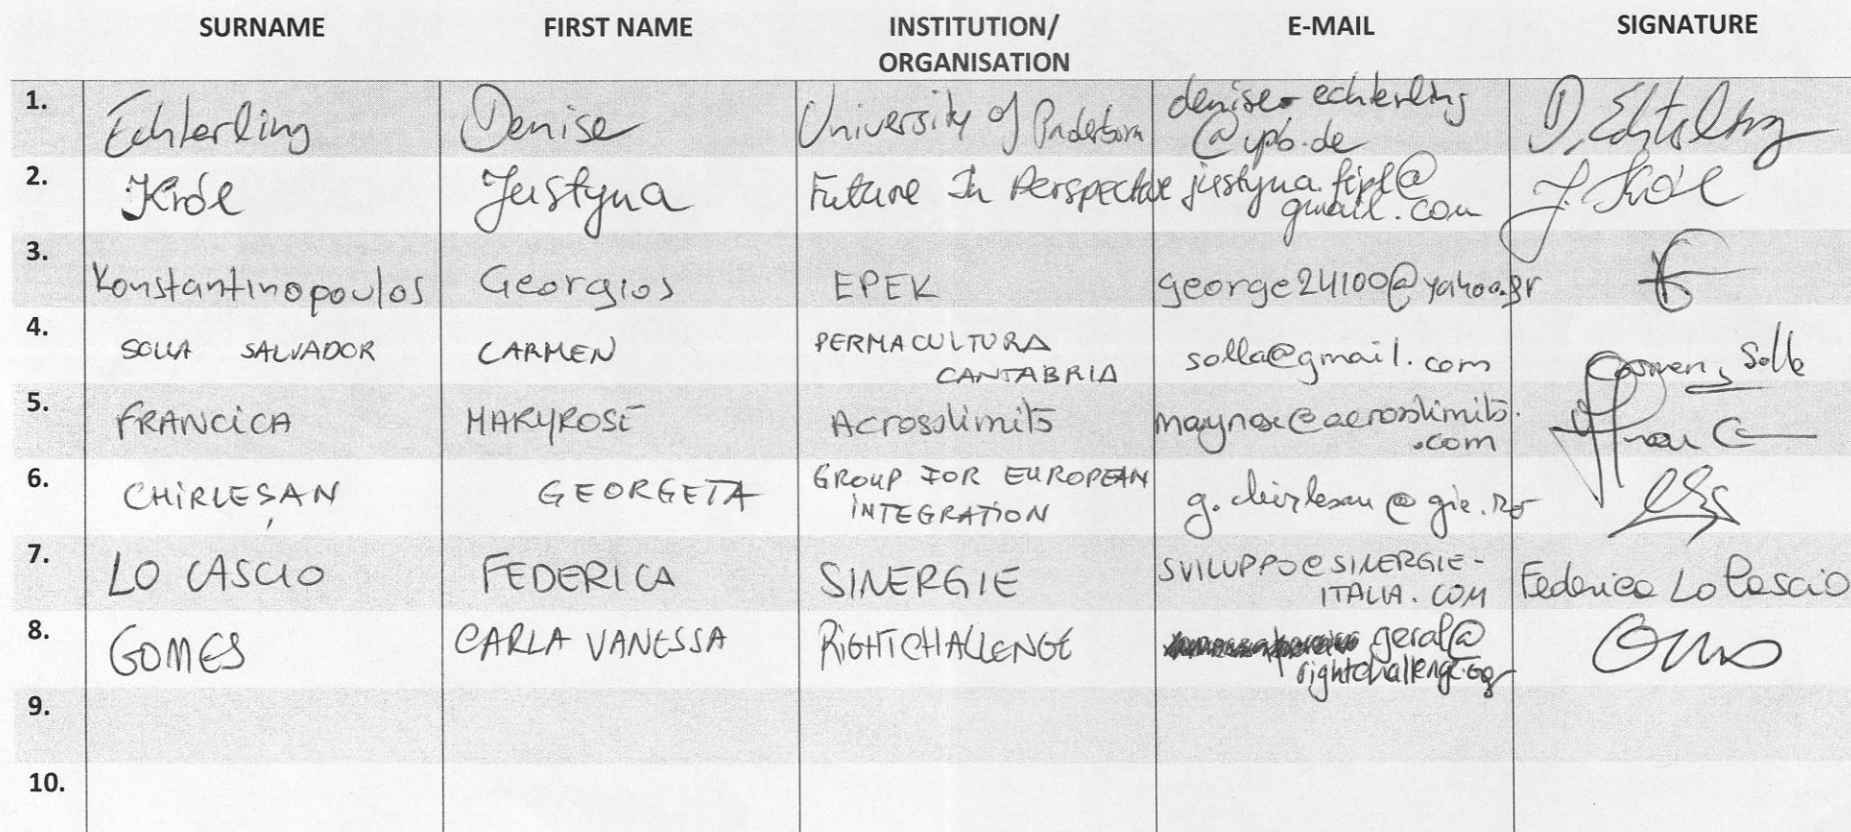 SURNAME FIRST NAME INSTITUTION/ E-MAIL SIGNATURE
ORGANISATION
1. Echterling Denise University of Paderborn denise.echterling
@upb.de D. Echterling
2. Król Justyna Future In Perspective justyna.fipl@
gmail.com J. Król
3. Konstantinopoulos Georgios EPEK george24100@yahoo.gr
4. SOLLA SALVADOR CARMEN PERMACULTURA solla@gmail.com Carmen Solla
CANTABRIA
5. FRANCICA MARYROSE Acrosslimits maryrose@acrosslimits.
.com
6. CHIRLESAN GEORGETA GROUP FOR EUROPEAN g.chirlesan@gie.ro
INTEGRATION
7. LO CASCIO FEDERICA SINERGIE SVILUPPO@SINERGIE-
ITALIA.COM Federica Lo Cascio
8. GOMES CARLA VANESSA RIGHTCHALLENGE geral@
rightchallenge.org
9.
10.